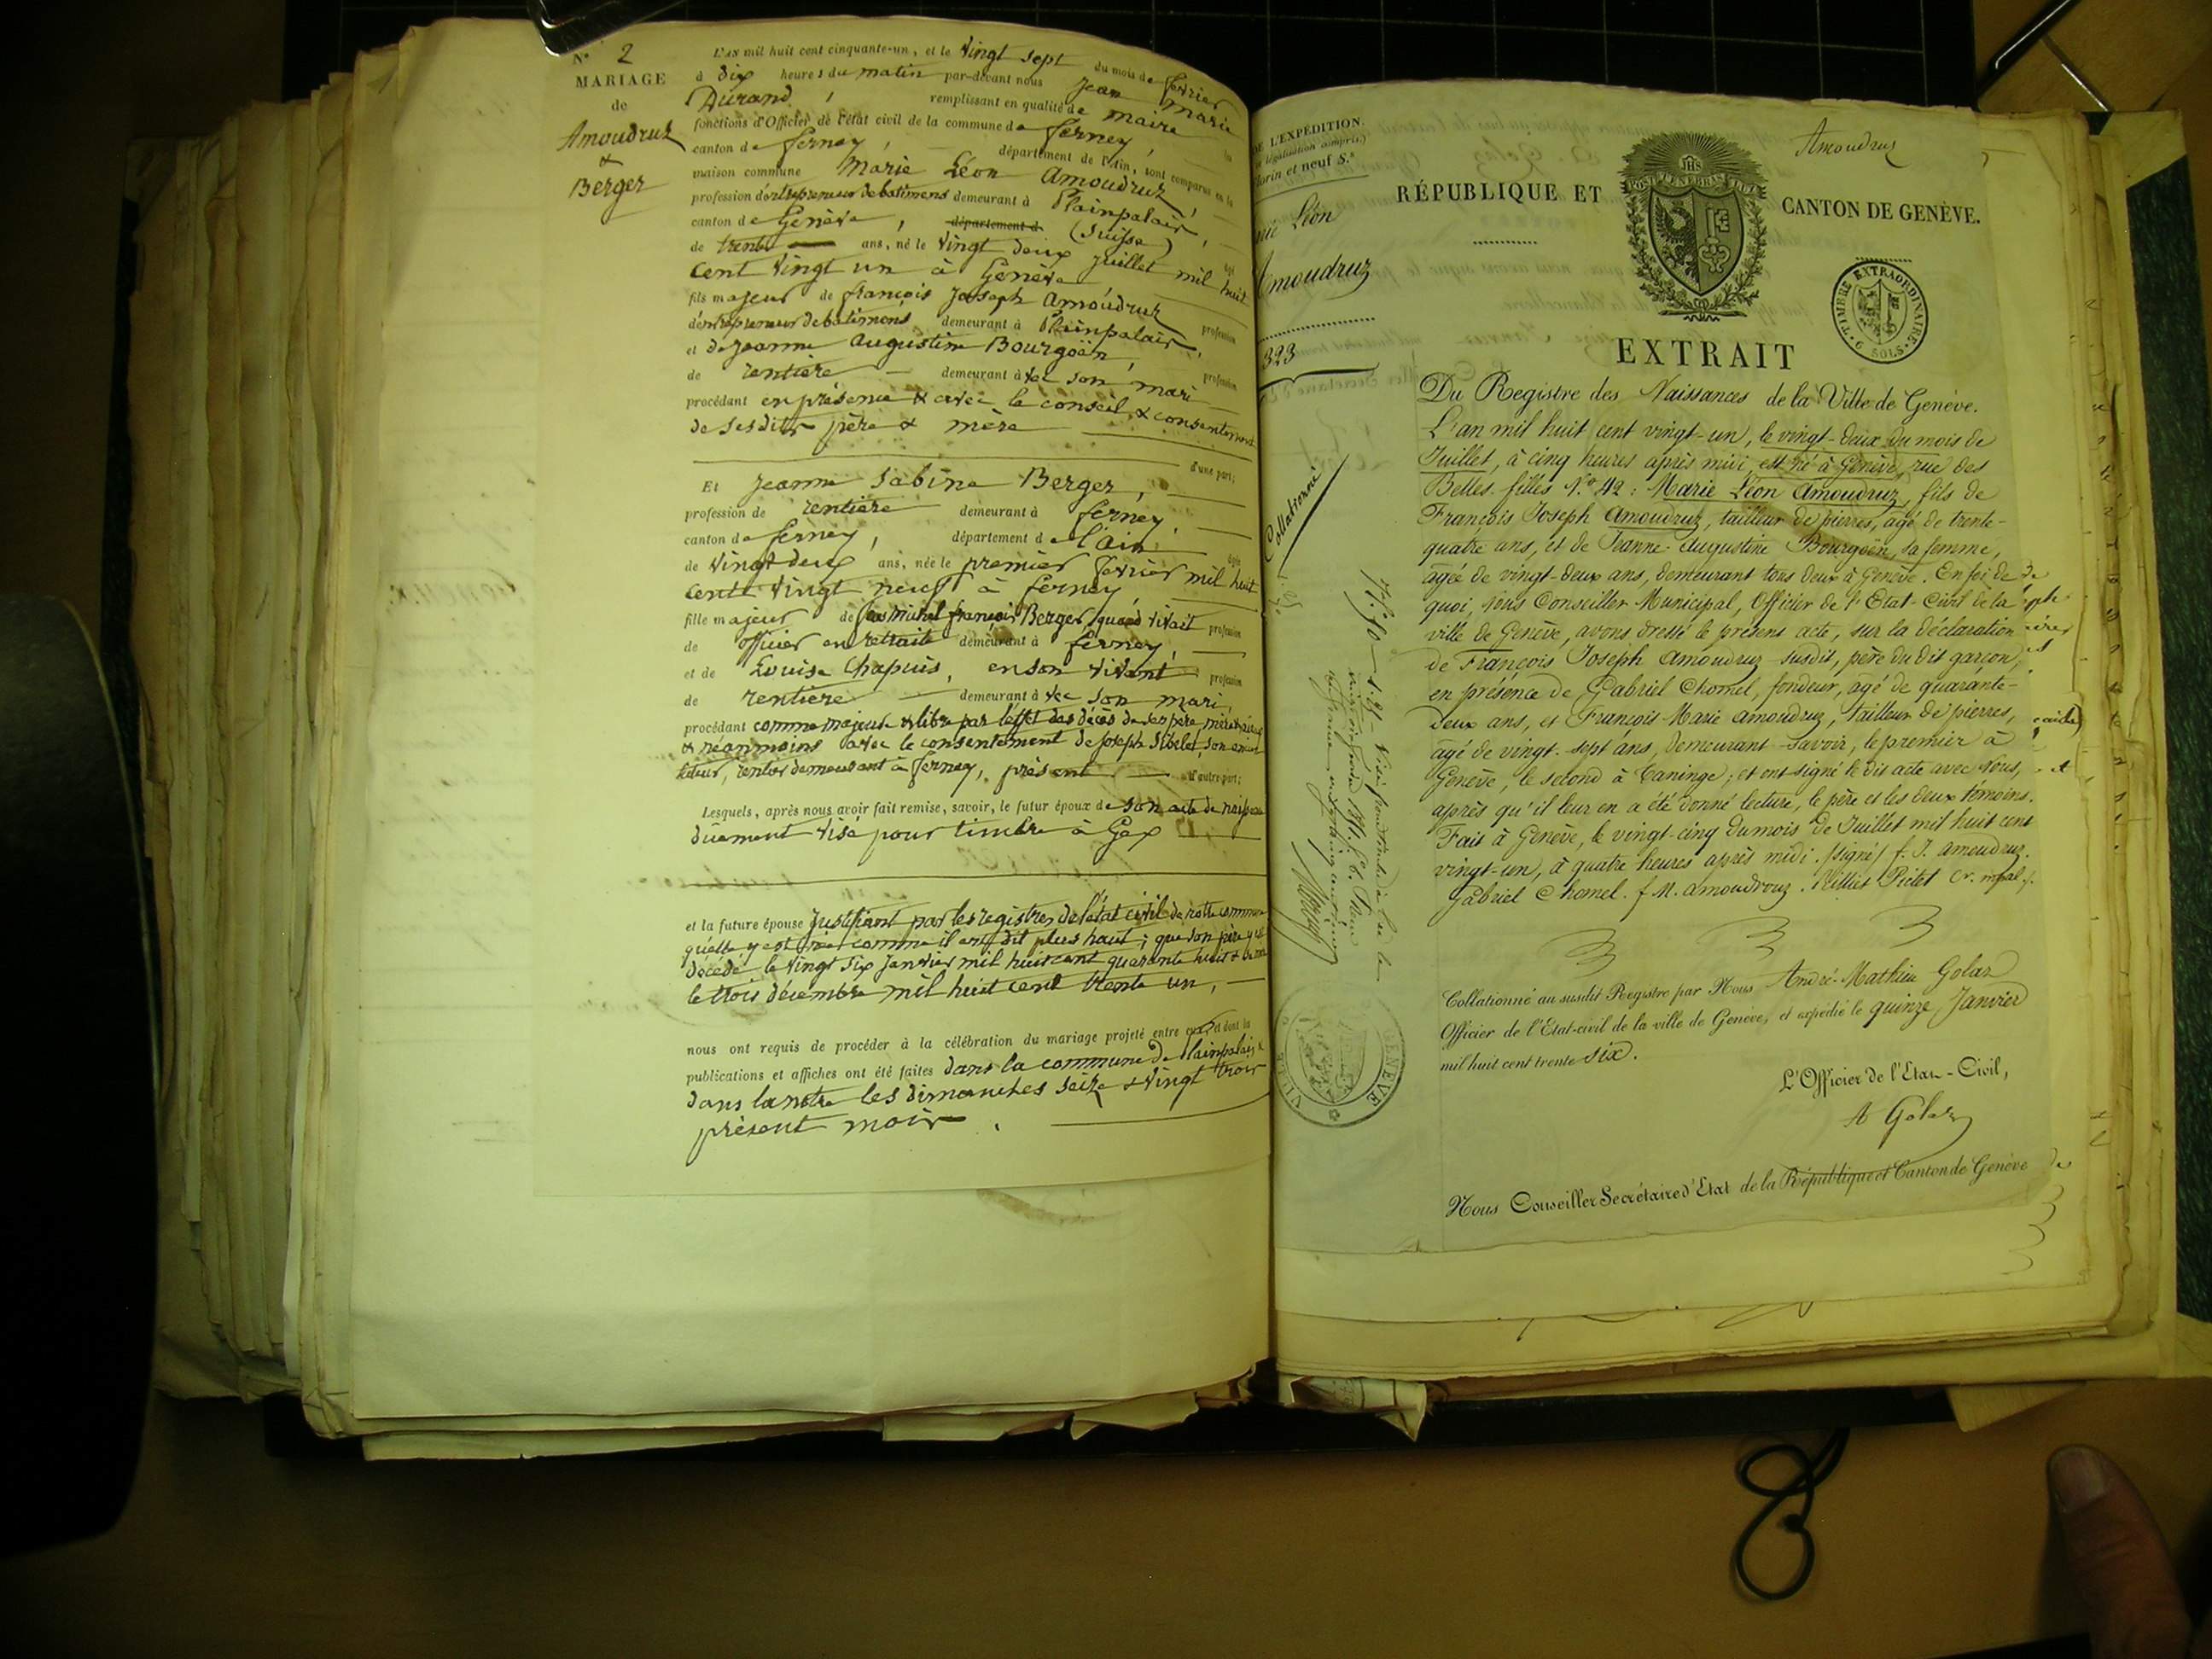 N° 2
MARIAGE
de
Amoudruz
&
Berger
L'an mil huit cent cinquante-un, et le vingt sept du mois de février
à dix heures du matin par-devant nous Jean Marie
Durand, remplissant en qualité de maire les
fonctions d'Officier de l'état civil de la commune de ferney,
canton de ferney, département de l'Ain, sont comparus en la
maison commune Marie Léon Amoudruz,
profession d'entrepreneur de batimens demeurant à Plainpalais,
canton de Genève, département d. (Suisse) âgé
de trente ans, né le vingt deux juillet mil huit
cent vingt un à Genève
fils majeur de françois Joseph Amoudruz profession
d'entrepreneur de batimens demeurant à Plainpalais,
et de Jeanne Augustine Bourgoën, profession
de rentière demeurant avec son mari
procédant en présence & avec le conseil & consentement
de sesdits père & mère
d'une part;
Et Jeanne Sabine Berger,
profession de rentière demeurant à ferney,
canton de ferney, département de l'Ain, âgée
de vingt deux ans, née le premier février mil huit
cent vingt neuf à ferney,
fille majeur de feu Michel françois Berger, quand vivait profession
de officier en retraite demeurant à ferney,
et de Louise Chapuis, en son vivant profession
de rentière demeurant avec son mari,
procédant comme majeure & libre par l'effet des décès de ses père, mère
& néanmoins avec le consentement de Joseph Sibelet, son ancien
tuteur, rentier demeurant à ferney, présent d'autre part;
Lesquels, après nous avoir fait remise, savoir, le futur époux de son acte de naissance
duement visé pour timbre à Gex
et la future épouse justifiant par les registres de l'état civil de notre commune
qu'elle y est née comme il est dit plus haut; que son père y est
décédé le vingt six janvier mil huit cent quarante huit &
le trois décembre mil huit cent trente un,
nous ont requis de procéder à la célébration du mariage projeté entre eux, et dont les
publications et affiches ont été faites dans la commune de Plainpalais &
dans la notre les dimanches seize & vingt trois
présent mois.
DE L'EXPÉDITION.
légalisation comprise)
florin et neuf S.s
Léon
Amoudruz
323
Collationné
VILLE
GENÈVE
Amoudruz
RÉPUBLIQUE ET
IHS
POST TENEBRAS LUX
CANTON DE GENÈVE.
TIMBRE EXTRAORDINAIRE
6 SOLS
EXTRAIT
Du Registre des Naissances de la Ville de Genève.
L'an mil huit cent vingt-un, le vingt-deux du mois de
Juillet, à cinq heures après midi, est né à Genève, rue des
Belles-filles N.o 42: Marie Léon Amoudruz, fils de
François Joseph Amoudruz, tailleur de pierres, agé de trente-
quatre ans, et de Jeanne Augustine Bourgoën, sa femme,
agée de vingt-deux ans, demeurant tous deux à Genève. En foi de
quoi, Nous Conseiller Municipal, Officier de l'Etat-Civil de la
ville de Genève, avons dressé le présent acte, sur la déclaration
de François Joseph Amoudruz susdit, père du dit garçon,
en présence de Gabriel Chomel, fondeur, agé de quarante-
deux ans, et François-Marie Amoudruz, tailleur de pierres,
agé de vingt-sept ans, demeurant savoir, le premier à
Genève, le second à Taninge; et ont signé le dit acte avec Nous,
après qu'il leur en a été donné lecture, le père et les deux témoins.
Fait à Genève, le vingt-cinq du mois de Juillet mil huit cent
vingt-un, à quatre heures après midi. (signé) f. J. amoudruz.
Gabriel Chomel. f M. amoudrouz. Pictet
Collationné au susdit Registre par Nous André-Mathieu Golaz
Officier de l'Etat-civil de la ville de Genève, et expédié le quinze Janvier
mil huit cent trente six.
L'Officier de l'Etat-Civil,
A Golaz
Nous Conseiller Secrétaire d'Etat de la République et Canton de Genève